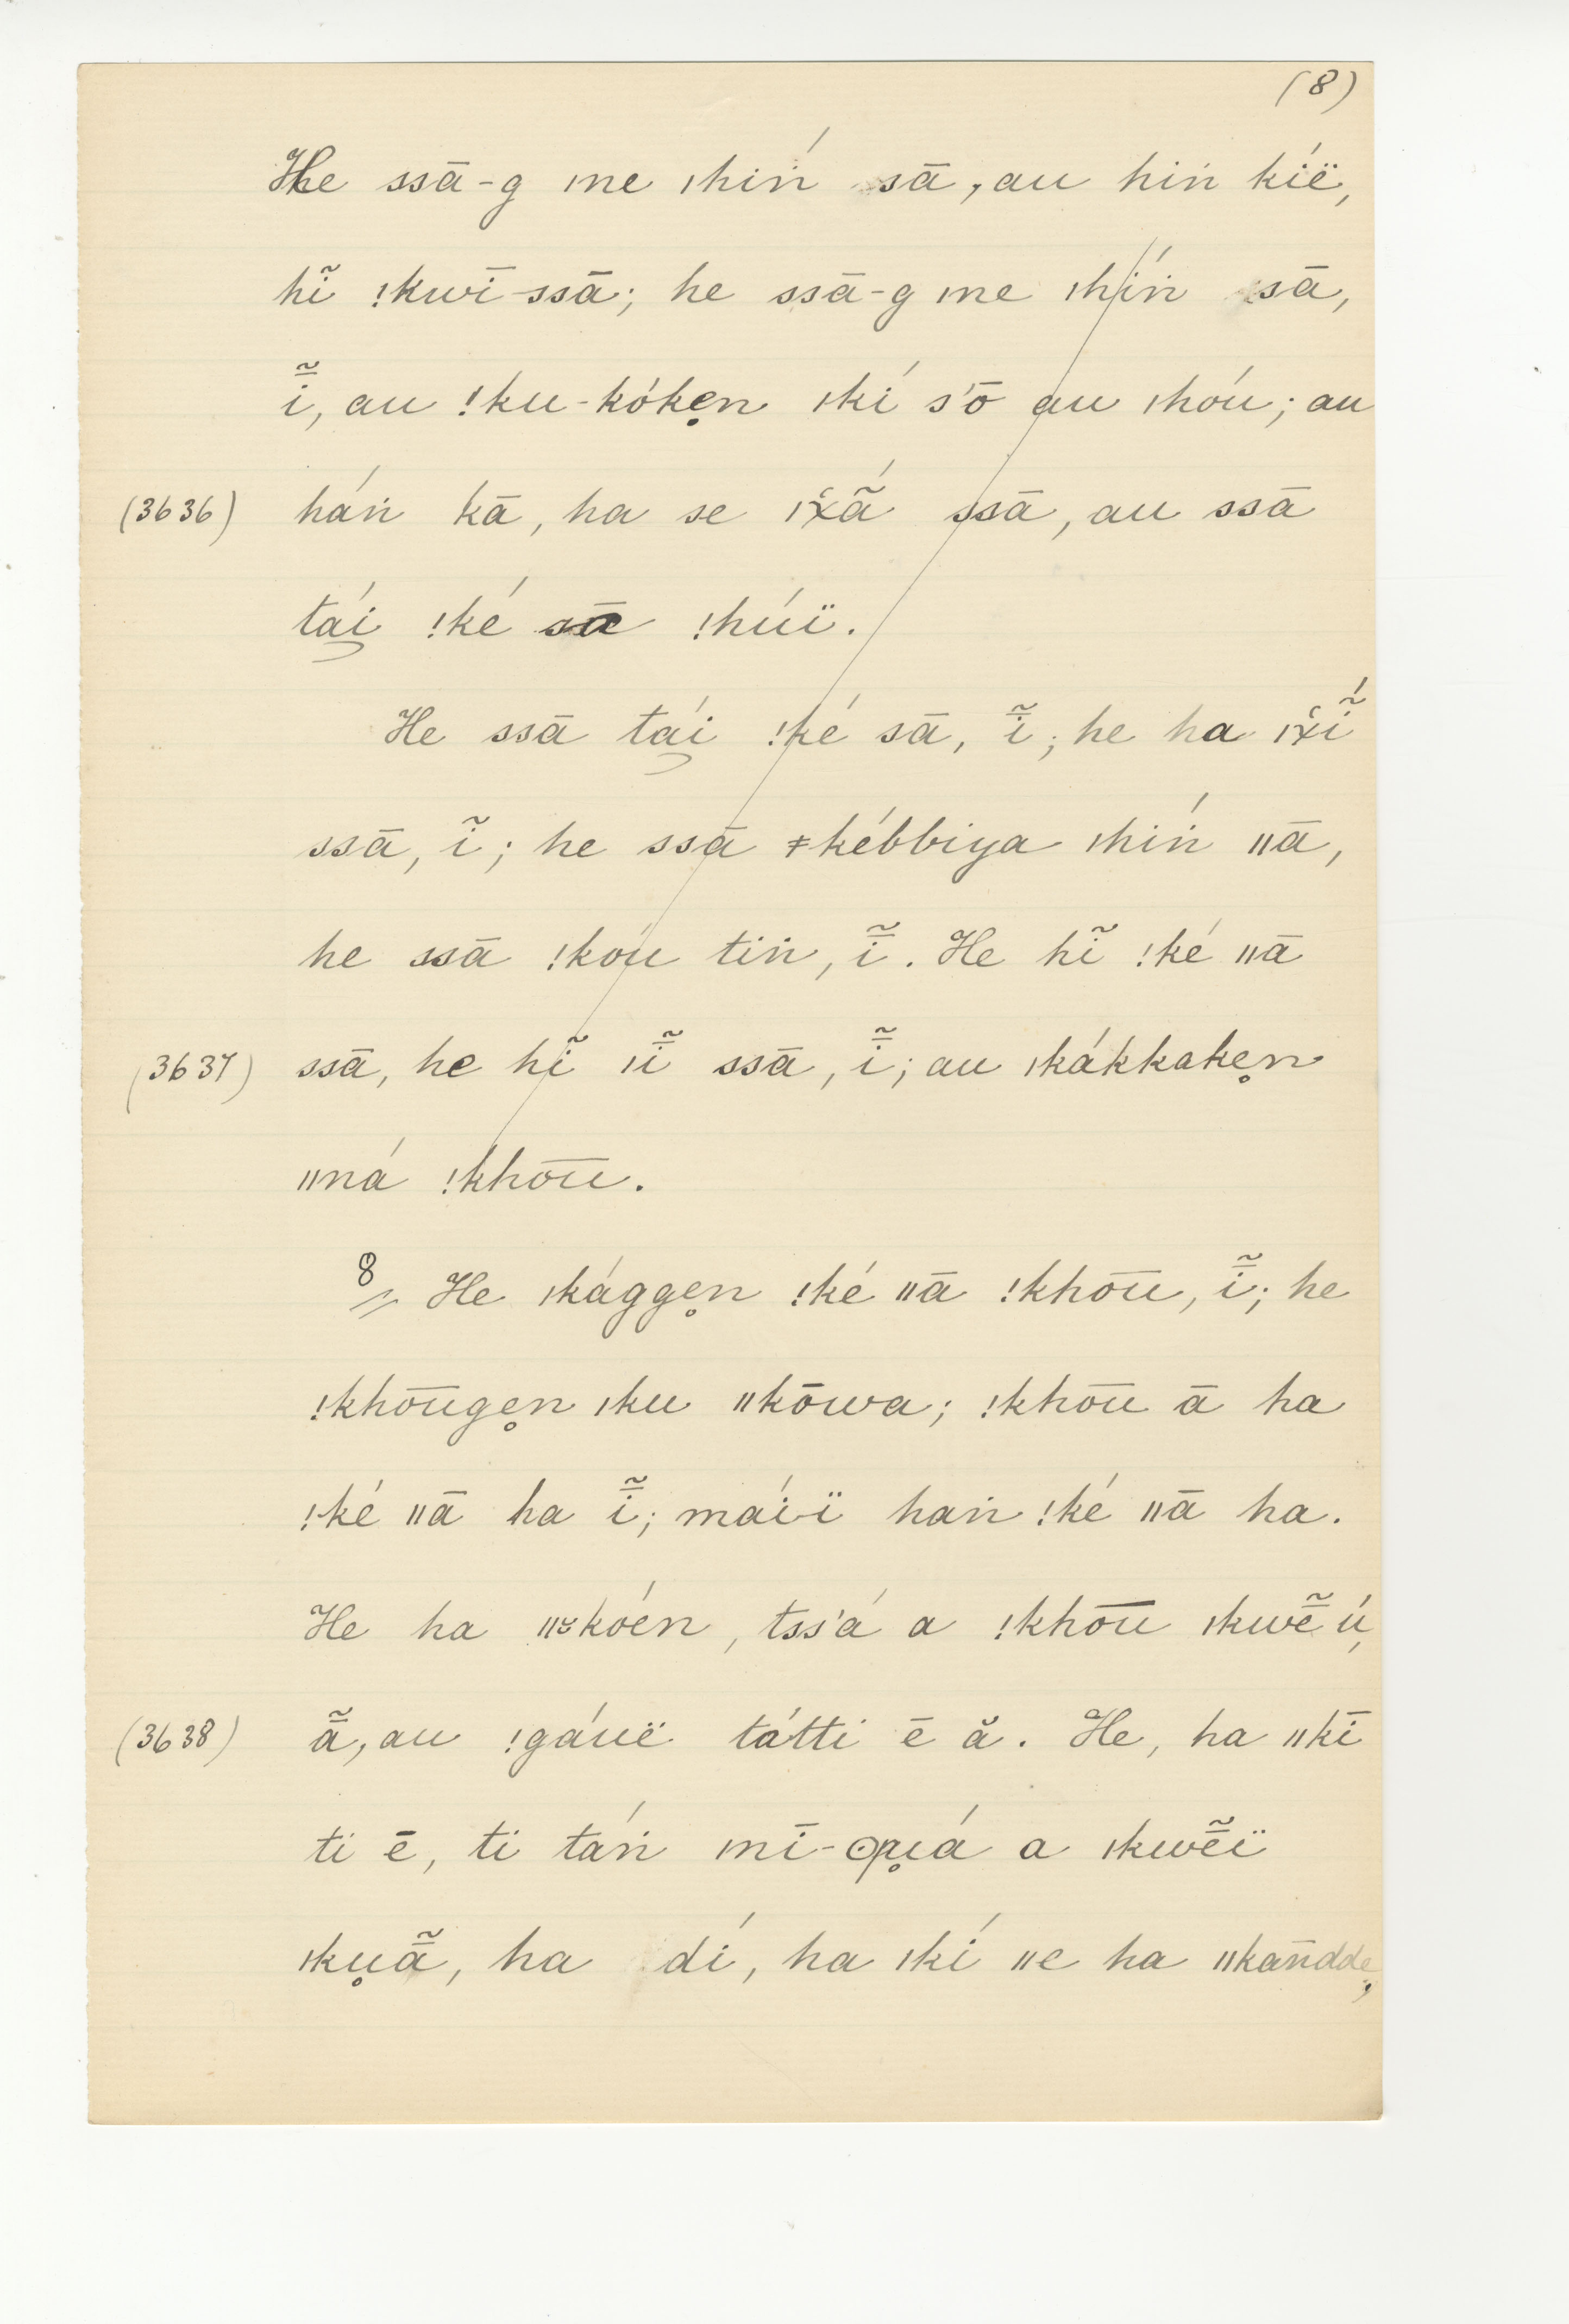 (8)
He ssā-g ǀne ǀhíṅ sā, au hiṅ kíë,
hĩ ǃkwī-ssā; he ssā-g ǀne ǀhíṅ sā,
ī̃, au ǃku-kókẹn ǀkí s'ō au ǀhóu; au
(3636) háṅ kā, ha se ǀx̆ā̃́ ssā, au ssā
tái ǃké sā ǃhúï.
He ssā tái ǃké sā, ī̃; he ha ǀx̆ĩ́
ssā, ĩ; he ssā ǂkébbiya ǀhíṅ ǁā,
he ssā ǃkóu tiṅ, ī̃. He hĩ ǃké ǁā
(3637) ssā, he hĩ ǀī̃ ssā, ī̃; au ǀkákkakẹn
ǁná ǃkhōū.
8 He ǀkággẹn ǃké ǁā ǃkhōū, ī̃; he
ǃkhōūgẹn ǀku ǁkōwa; ǃkhōū ā ha
ǃké ǁā ha ī̃; máíï haṅ ǃké ǁā ha.
He ha ǁk̆óén, tss'á a ǃkhōū ǀkwẽ̄ ú,
(3638) ā̃, au ǃgáuë tátti ē ă. He, ha ǁkī
tï ē, ti táṅ ǀnī-ʘpụá a ǀkwẽ̄ï
ǀkụā̃, ha dí, ha ǀkí ǁe ha ǁkāndde,